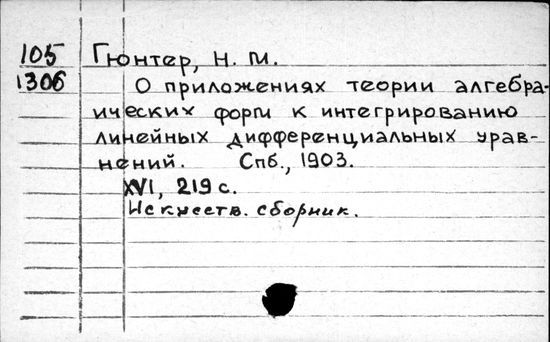 105 Гюнтер, Н. М.
1306 О приложениях теории алгебра-
ических форм к интегрированию
линейных дифференциальных урав-
нений. Спб., 1903.
XVI, 219 с.
Искусств. сборник.